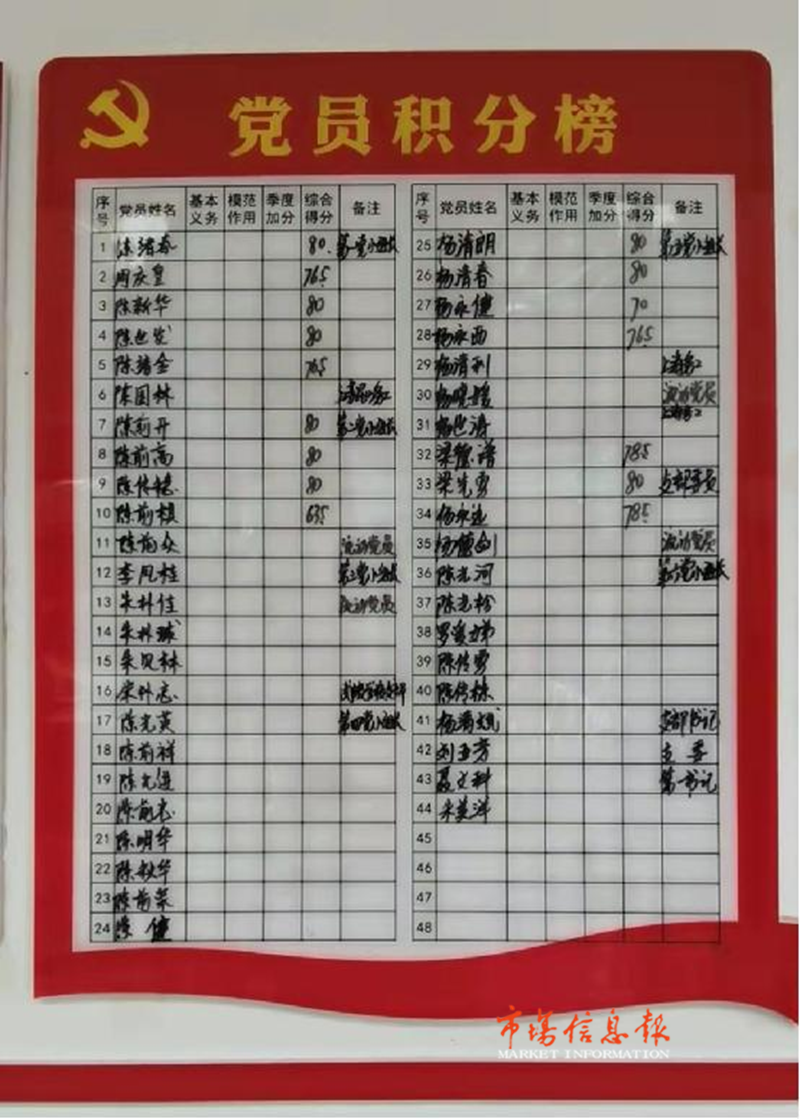 党员积分榜
序号 党员姓名 基本义务 模范作用 季度加分 综合得分 备注
1 80. 第一党小组长
2 周庆皇 76.5
3 陈新华 80
4 80
5 76.5
6 陈国林
7 陈前开 80 第二党小组长
8 陈前高 80
9 80
10 陈前 63.5
11 陈前众 流动党员
12 李凤桂 第三党小组长
13 朱朴佳 流动党员
14 朱
15 朱贝林
16
17 陈光英 第四党小组长
18 陈前祥
19 陈光
20 陈前
21 陈明华
22 陈秋华
23 陈前荣
24 健
序号 党员姓名 基本义务 模范作用 季度加分 综合得分 备注
25 杨清明 80 第五党小组长
26 杨清春 80
27 杨永健 70
28 杨永西 76.5
29 杨清利 上海务工
30 杨晓媛 流动党员
31 杨 涛 上海务工
32 梁德 78.5
33 梁光勇 80 支部委员
34 杨永 78.5
35 杨德剑 流动党员
36 陈光河 第六党小组长
37 陈光松
38 罗爱
39 陈传勇
40 陈传栋
41 杨清斌 支部书记
42 刘玉芳 支委
43 聂文科 第一书记
44 朱英洋
45
46
47
48
市场信息報
MARKET INFORMATION